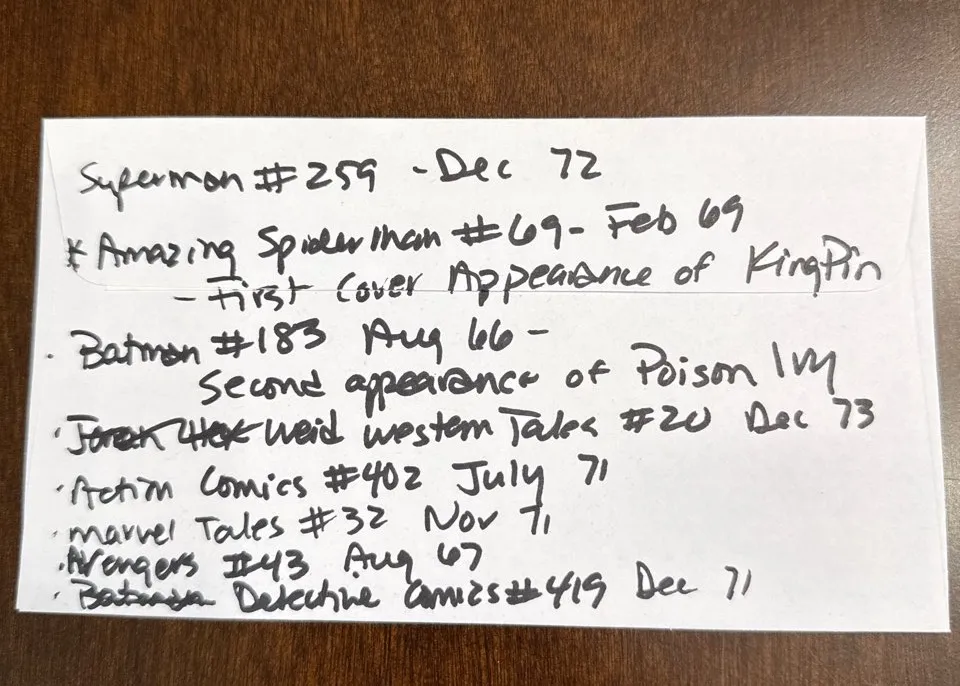 Superman #259 - Dec 72
* Amazing Spiderman #69 - Feb 69
- First Cover Appearance of KingPin
. Batman #183 Aug 66 -
Second appearance of Poison Ivy
. Jonah Hex Weid western Tales #20 Dec 73
. Action Comics #402 July 71
. marvel Tales #32 Nov 71
. Avengers #43 Aug 67
. Batman Detective Comics #419 Dec 71